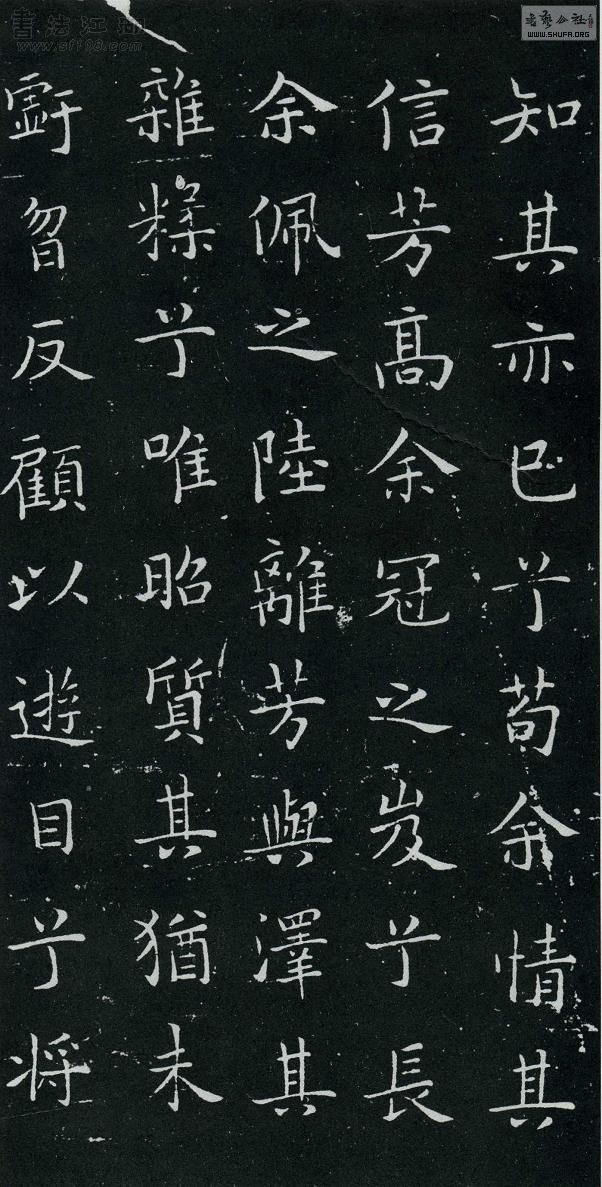 知其亦已兮苟余情其
信芳髙余冠之岌兮長
余佩之陸離芳與澤其
雜糅兮唯昭質其猶未
虧曶反顧以遊目兮将
書法江湖
www.sf108.com
WWW.SHUFA.ORG